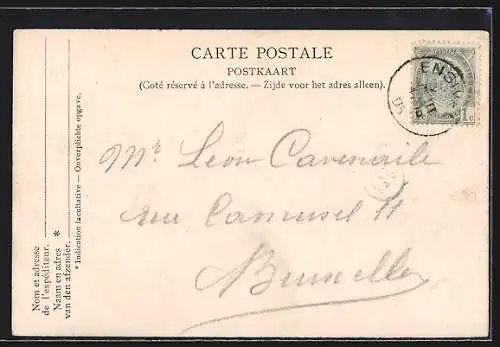 CARTE POSTALE
POSTKAART
(Coté réservé à l'adresse. — Zijde voor het adres alleen).
ENSIVAL
05
1c
Mr Léon Cavenaile
rue 11
Bruxelles
Nom et adresse
de l'expéditeur.
Naam en adres *
van den afzender.
* Indication facultative — Onverplichte opgave.